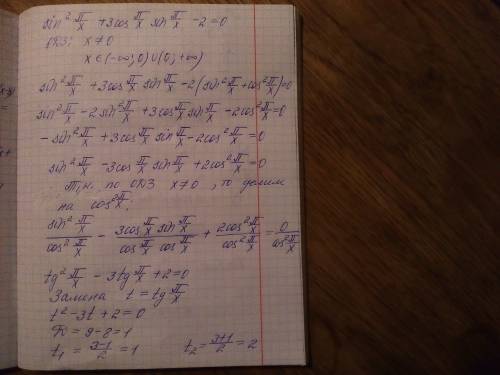 sin² π/x + 3cos π/x sin π/x - 2 = 0
ОДЗ: x ≠ 0
x ∈ (-∞; 0) ∪ (0; +∞)
sin² π/x + 3cos π/x sin π/x - 2(sin² π/x + cos² π/x) = 0
sin² π/x - 2 sin² π/x + 3cos π/x sin π/x - 2cos² π/x = 0
- sin² π/x + 3cos π/x sin π/x - 2cos² π/x = 0
sin² π/x - 3cos π/x sin π/x + 2cos² π/x = 0
Т.к. по ОДЗ x ≠ 0, то делим
на cos² π/x:
sin² π/x / cos² π/x - 3cos π/x sin π/x / cos π/x cos π/x + 2cos² π/x / cos² π/x = 0 / cos² π/x
tg² π/x - 3tg π/x + 2 = 0
Замена t = tg π/x
t² - 3t + 2 = 0
D = 9 - 8 = 1
t₁ = 3-1/2 = 1 t₂ = 3+1/2 = 2